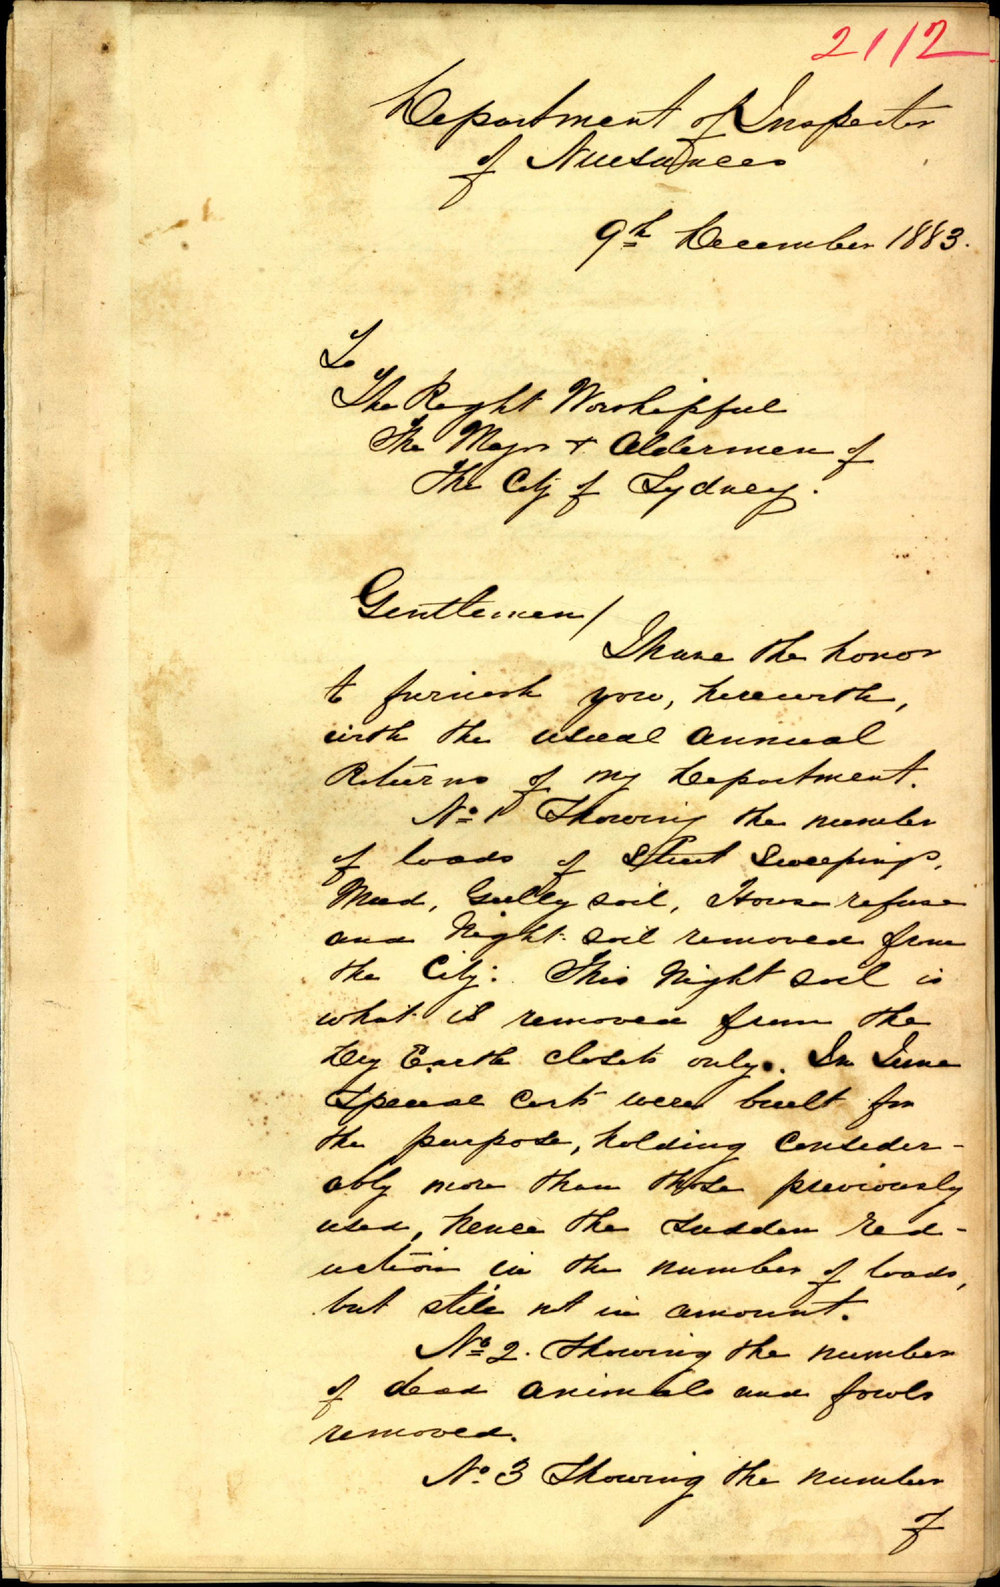 2112
Department of Inspector
of Nuesances
9th December 1883.
To
The Right Worshipful
The Mayor + Aldermen of
The City of Sydney.
Gentlemen/
I have the honor
to furnish you, herewith,
with the usual annual
Returns of my Department.
No. 1 Showing the number
of loads of Street Sweepings,
Mud, Gully soil, House refuse
and Night soil removed from
the City. This Night soil is
what is removed from the
Dry Earth closets only. In June
special Carts were built for
the purpose, holding Consider-
ably more than those previously
used, hence the sudden red-
uction in the number of loads,
but still not in amount.
No. 2. Showing the number
of dead animals and fowls
removed.
No. 3 Showing the number
of